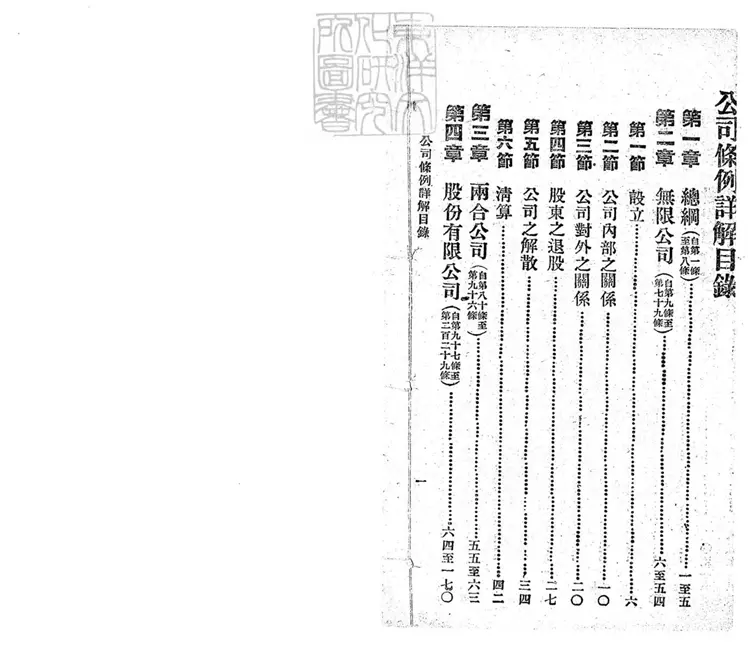 公司條例詳解目錄
第一章 總綱(自第一條至第八條)……一至五
第二章 無限公司(自第九條至第七十九條)……六至五四
第一節 設立……六
第二節 公司內部之關係……一〇
第三節 公司對外之關係……二〇
第四節 股東之退股……二七
第五節 公司之解散……三四
第六節 淸算……四二
第三章 兩合公司(自第八十條至第九十六條)……五五至六三
第四章 股份有限公司(自第九十七條至第二百二十九條)……六四至一七〇
公司條例詳解目錄 一
東洋文化研究所圖書